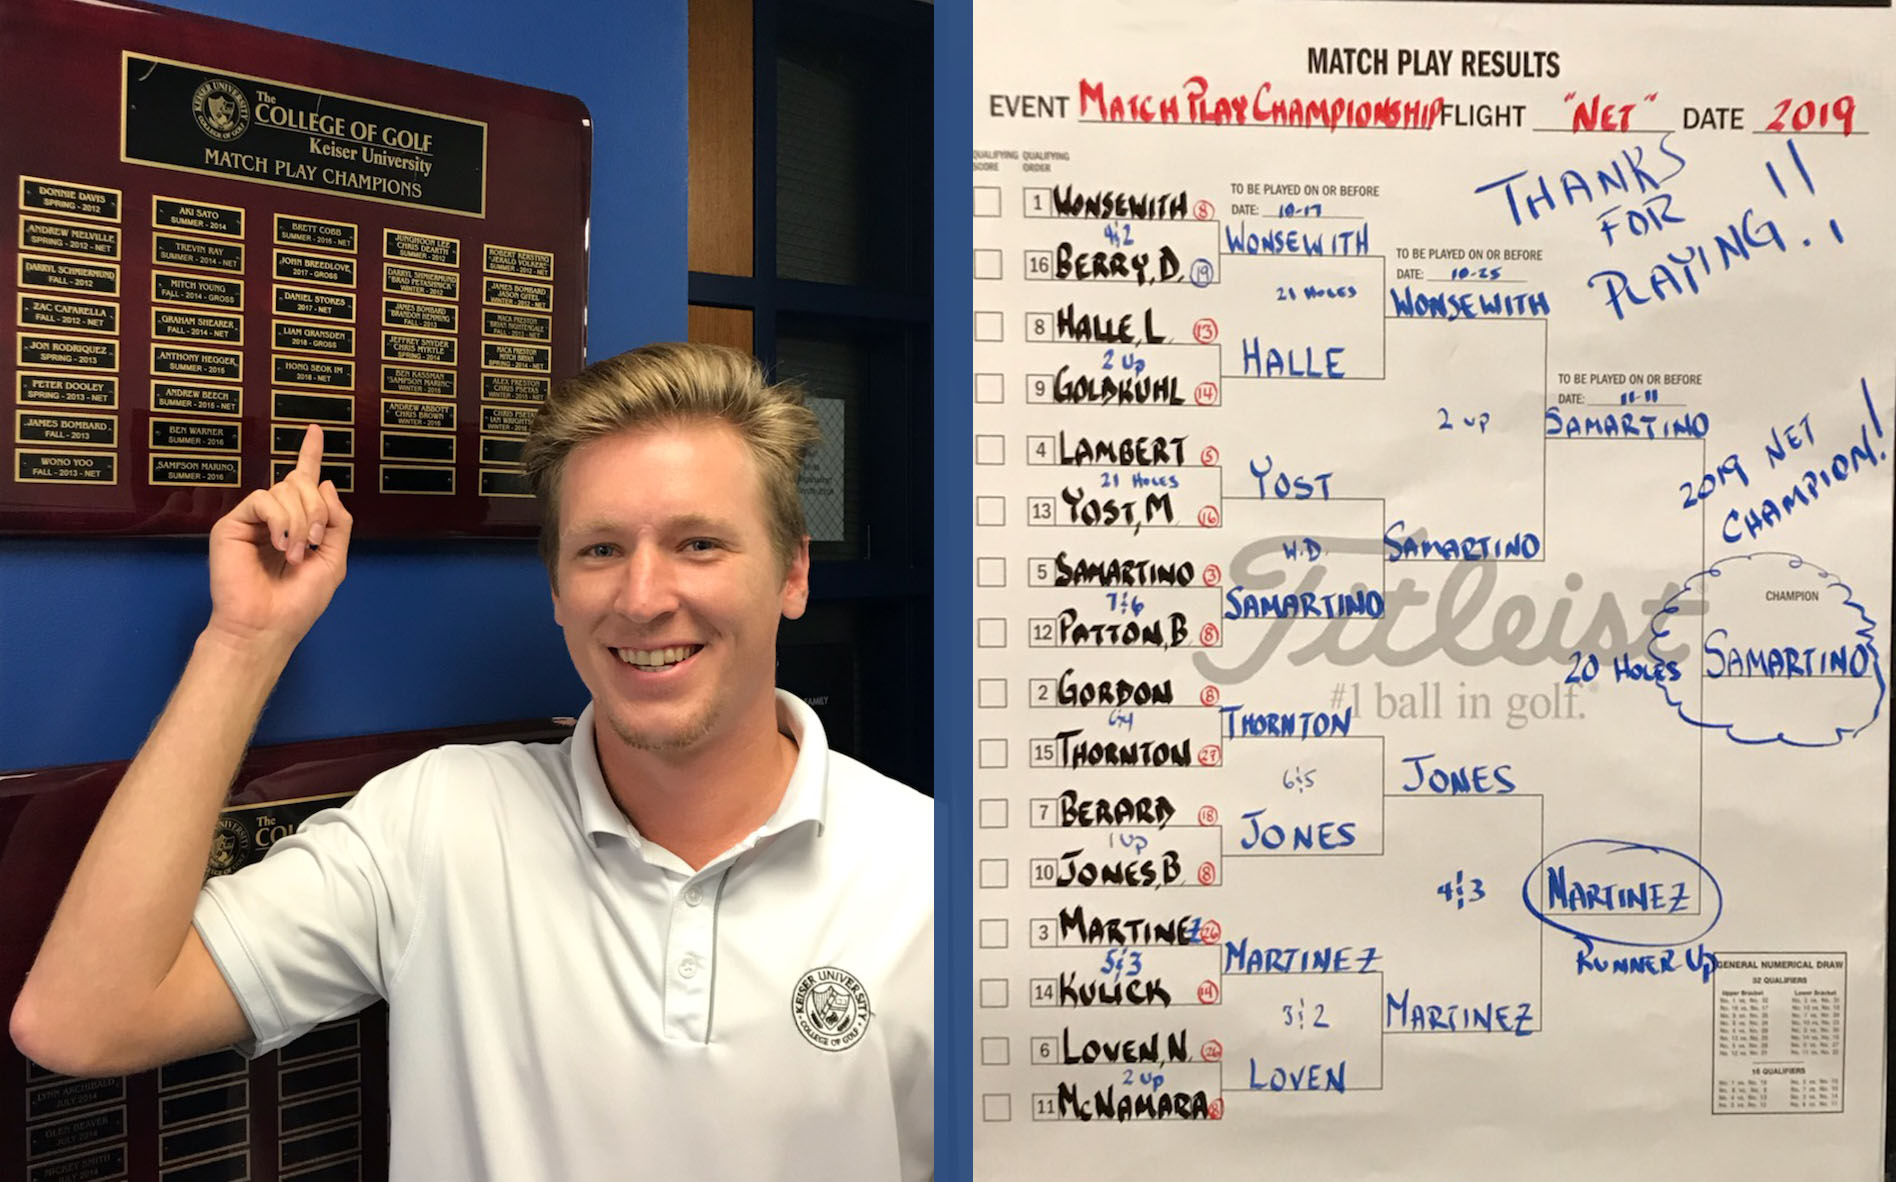 KEISER UNIVERSITY
COLLEGE OF GOLF
The
COLLEGE OF GOLF
Keiser University
MATCH PLAY CHAMPIONS
DONNIE DAVIS
SPRING - 2012
ANDREW MELVILLE
SPRING - 2012 - NET
DARRYL SCHMIERMUND
FALL - 2012
ZAC CAFARELLA
FALL - 2012 - NET
JON RODRIQUEZ
SPRING - 2013
PETER DOOLEY
SPRING - 2013 - NET
JAMES BOMBARD
FALL - 2013
WONO YOO
FALL - 2013 - NET
AKI SATO
SUMMER - 2014
TREVIN RAY
SUMMER - 2014 - NET
MITCH YOUNG
FALL - 2014 - GROSS
GRAHAM SHEARER
FALL - 2014 - NET
ANTHONY HEGGER
SUMMER - 2015
ANDREW BEECH
SUMMER - 2015 - NET
BEN WARNER
SUMMER - 2016
SAMPSON MARINO
SUMMER - 2016
BRETT COBB
SUMMER - 2016 - NET
JOHN BREEDLOVE
2017 - GROSS
DANIEL STOKES
2017 - NET
LIAM GRANSDEN
2018 - GROSS
HONG SEOK IM
2018 - NET
JUNGHOON LEE
CHRIS DEARTH
SUMMER - 2012
DARRYL SCHMIERMUND
WINTER - 2012
JAMES BOMBARD
BRANDON HENNING
FALL - 2013
JEFFREY SNYDER
CHRIS MYRTLE
SPRING - 2014
BEN KASSMAN
"SAMPSON MARINO"
WINTER - 2015
ANDREW ABBOTT
CHRIS BROWN
WINTER - 2016
ROBERT KERSTING
"JERALD VOLKER"
SUMMER - 2012 - NET
JAMES BOMBARD
JASON GITEL
WINTER - 2012 - NET
MACK PRESTON
"BRYAN NIGHTENGALE"
FALL - 2013 - NET
MACK PRESTON
MITCH BRYAN
SPRING - 2014 - NET
ALEX PRESTON
CHRIS PSETAS
WINTER - 2015 - NET
FAMILY
The
COL
LYNN ARCHIBALD
JULY 2014
GLEN BEAVER
JULY 2014
MICKEY SMITH
JULY 2014
KEISER UNIVERSITY
COLLEGE OF GOLF
MATCH PLAY RESULTS
EVENT MATCH PLAY CHAMPIONSHIP FLIGHT "NET" DATE 2019
QUALIFYING SCORE QUALIFYING ORDER
THANKS
FOR
PLAYING!!
1 WONSEWITH 8
4&2
16 BERRY, D. 19
8 HALLE, L 13
2 UP
9 GOLDKUHL 14
4 LAMBERT 5
21 HOLES
13 YOST, M 16
5 SAMARTINO 3
7&6
12 PATTON, B 8
2 GORDON 8
15 THORNTON 27
7 BERARD 18
1 UP
10 JONES, B 8
3 MARTINEZ 26
5&3
14 KULICK 14
6 LOVEN, N. 26
2 UP
11 McNAMARA
TO BE PLAYED ON OR BEFORE
DATE: 10-17
WONSEWITH
21 HOLES
HALLE
YOST
W.D.
SAMARTINO
THORNTON
6&5
JONES
MARTINEZ
3&2
LOVEN
TO BE PLAYED ON OR BEFORE
DATE: 10-25
WONSEWITH
2 UP
SAMARTINO
JONES
4&3
MARTINEZ
TO BE PLAYED ON OR BEFORE
DATE: 11-11
SAMARTINO
20 HOLES
MARTINEZ
RUNNER UP
2019 NET
CHAMPION!
CHAMPION
SAMARTINO
Titleist
#1 ball in golf.
GENERAL NUMERICAL DRAW
32 QUALIFIERS
Upper Bracket Lower Bracket
16 QUALIFIERS